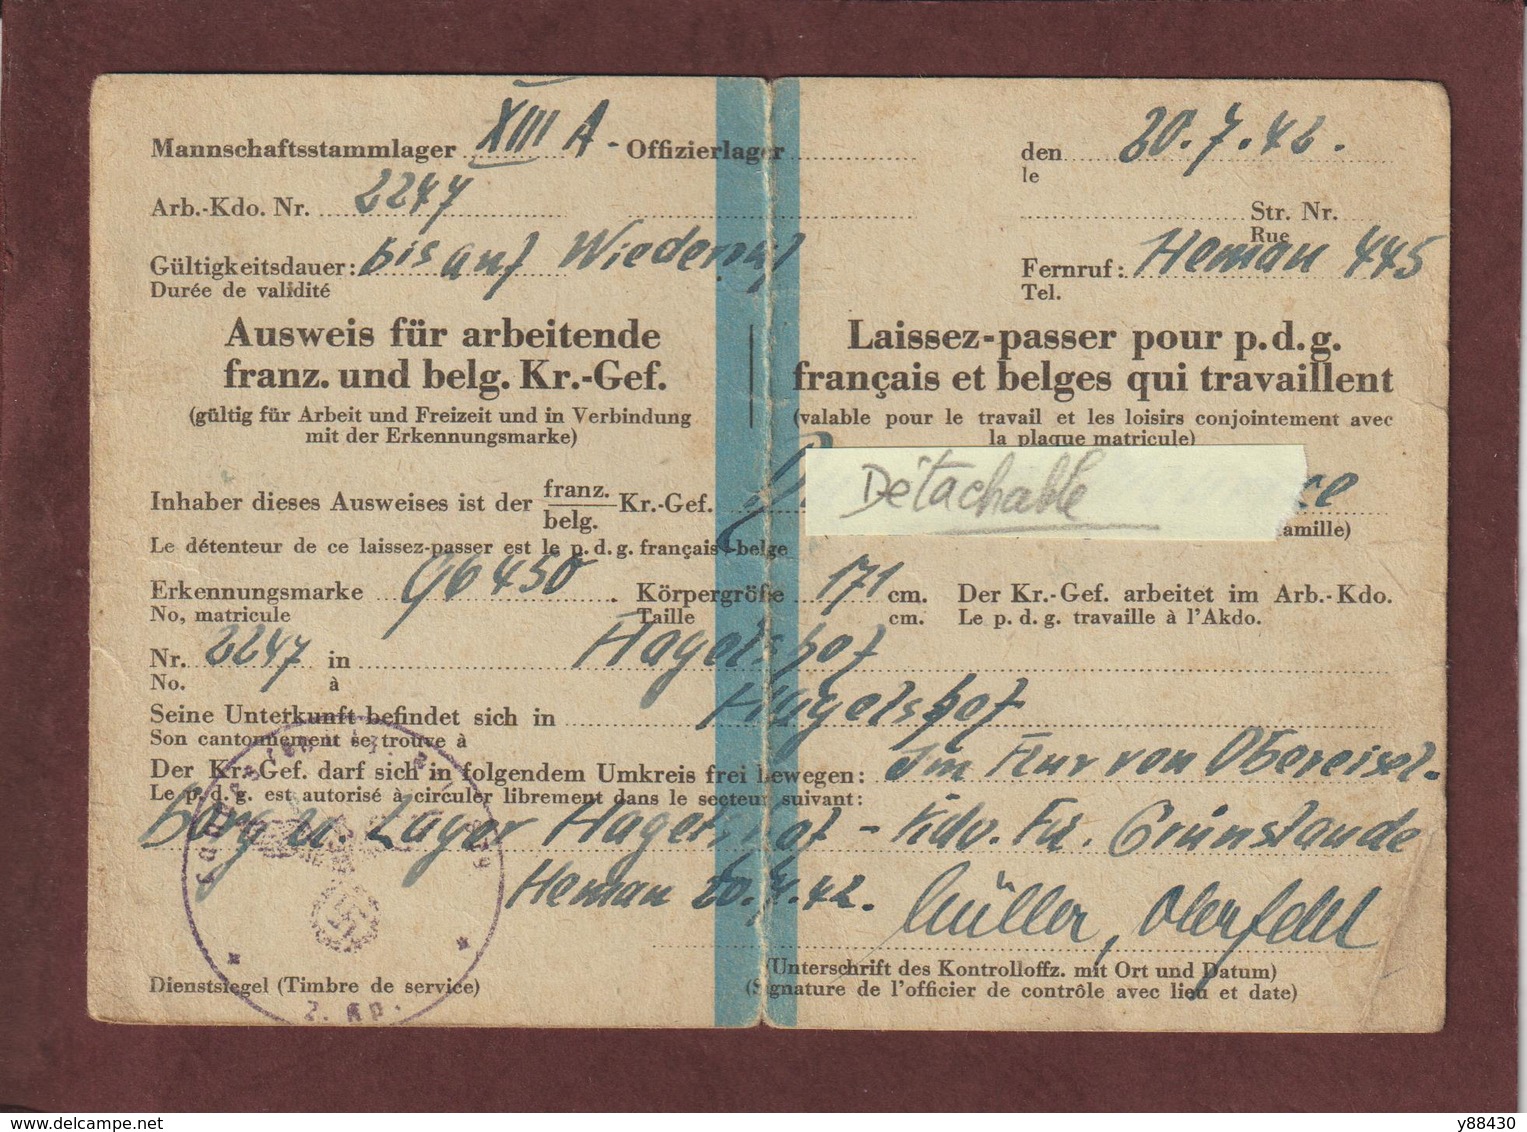 Mannschaftsstammlager XIII A - Offizierlager
den 20.7.42.
le
Arb.-Kdo. Nr. 2247
Str. Nr.
Rue
Gültigkeitsdauer: bis auf Wiederruf
Durée de validité
Fernruf: Hemau 445
Tel.
Ausweis für arbeitende
franz. und belg. Kr.-Gef.
(gültig für Arbeit und Freizeit und in Verbindung
mit der Erkennungsmarke)
Laissez-passer pour p.d.g.
français et belges qui travaillent
(valable pour le travail et les loisirs conjointement avec
la plaque matricule)
Détachable
Inhaber dieses Ausweises ist der franz. Kr.-Gef.
belg.
amille)
Le détenteur de ce laissez-passer est le p. d. g. français belge
Erkennungsmarke 96450. Körpergröße 171 cm. Der Kr.-Gef. arbeitet im Arb.-Kdo.
No, matricule Taille cm. Le p. d. g. travaille à l'Akdo.
Nr. 2247 in Hagelshof
No. à
Seine Unterkunft befindet sich in Hagelshof
Son cantonnement se trouve à
Der Kr.-Gef. darf sich in folgendem Umkreis frei bewegen: Im Flur von Obereisel-
Le p. d. g. est autorisé à circuler librement dans le secteur suivant:
barg u. Lager Hagelshof - Kdo. Fü.
Hemau 20.7.42. Müller, Oberfeldl
Dienstsiegel (Timbre de service)
(Unterschrift des Kontrolloffz. mit Ort und Datum)
(Signature de l'officier de contrôle avec lieu et date)
2. Kp.
delcampe.net
y88430